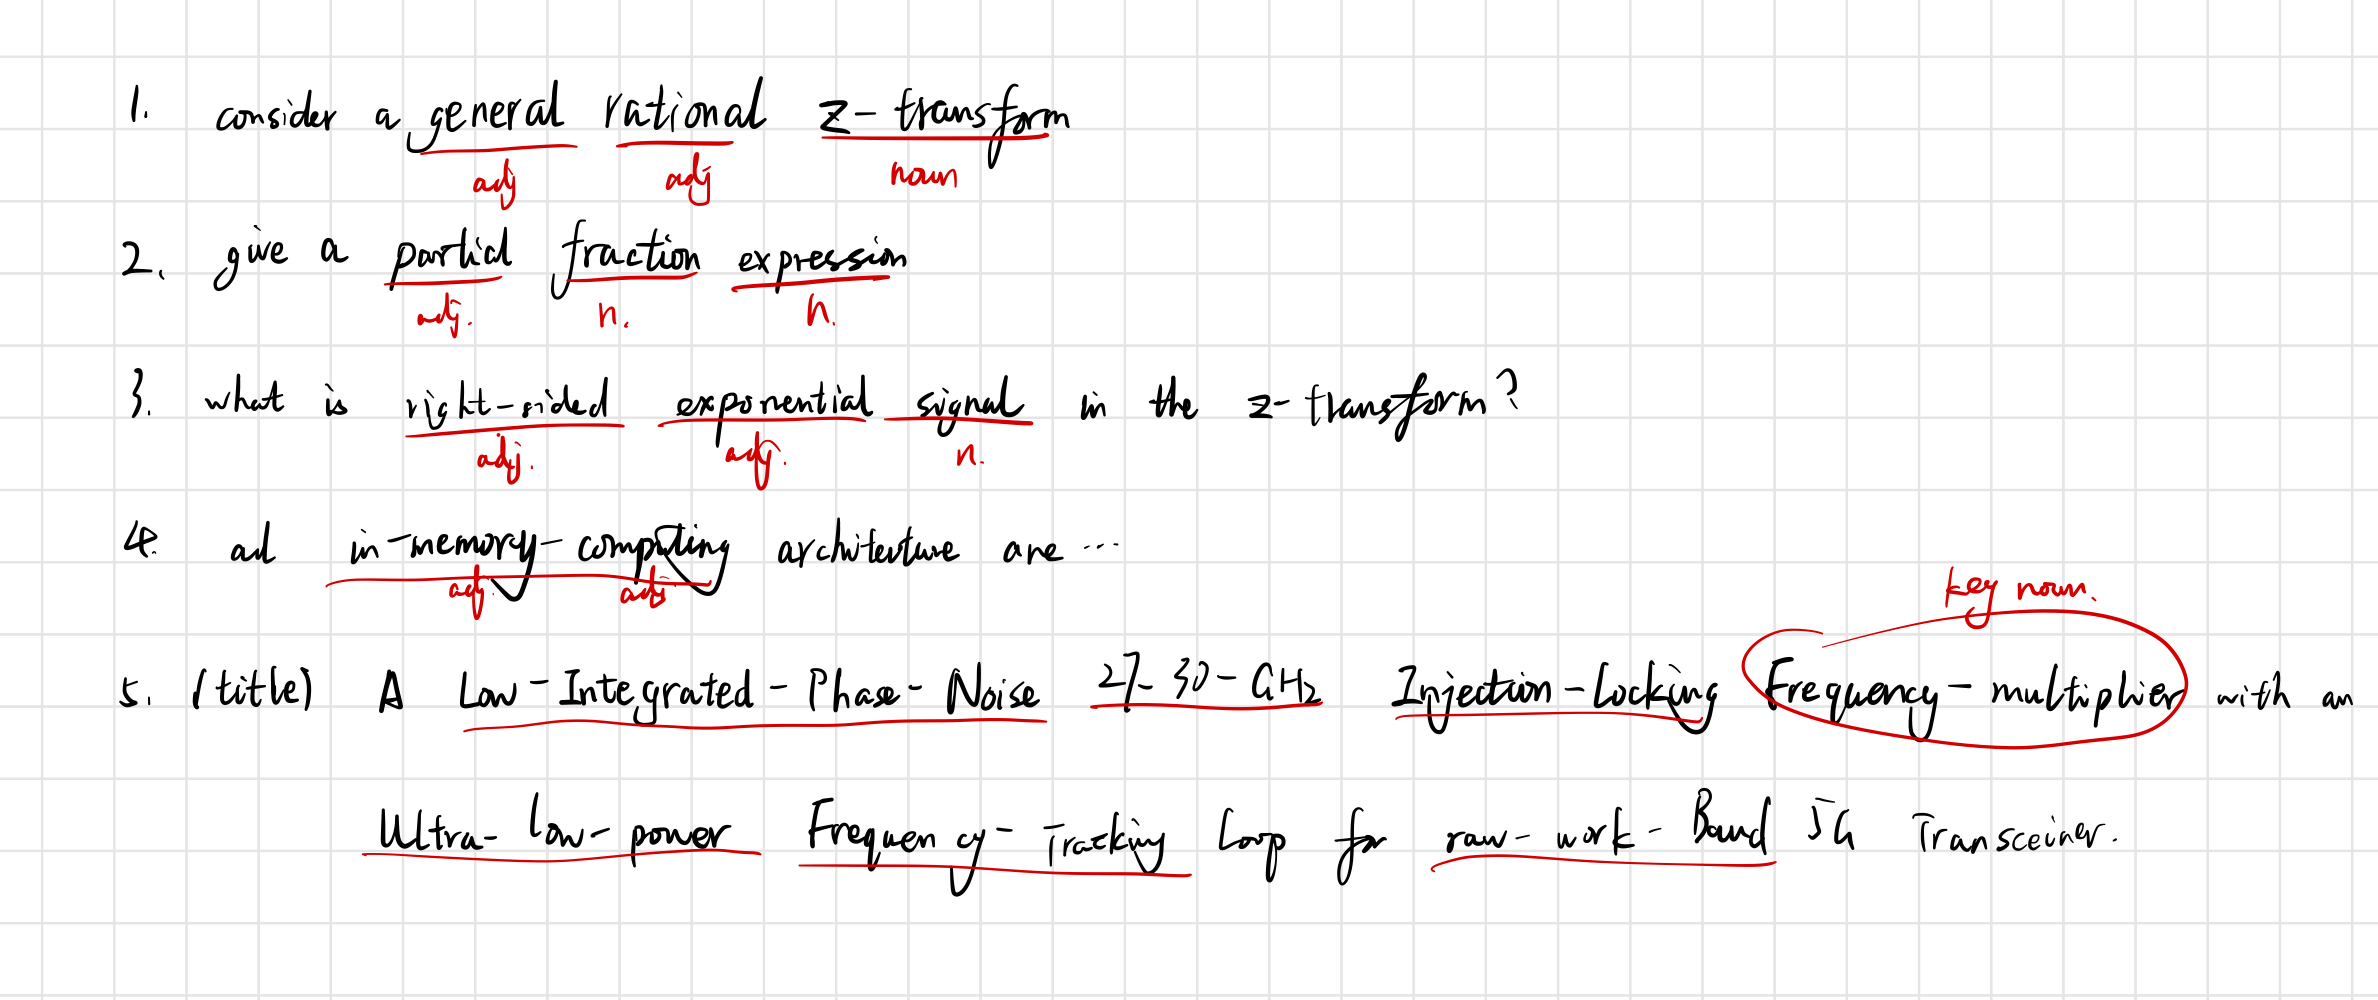 1. consider a general rational z-transform
adj adj noun
2. give a partial fraction expression
adj. n. n.
3. what is right-sided exponential signal in the z-transform?
adj. adj. n.
4. in-memory-computing architecture are ...
adj. adj.
key noun.
5. (title) A Low-Integrated-Phase-Noise 27-30-GHz Injection-Locking Frequency-multiplier with an
Ultra-low-power Frequency-Tracking Loop for raw-work-Band 5G Transceiner.